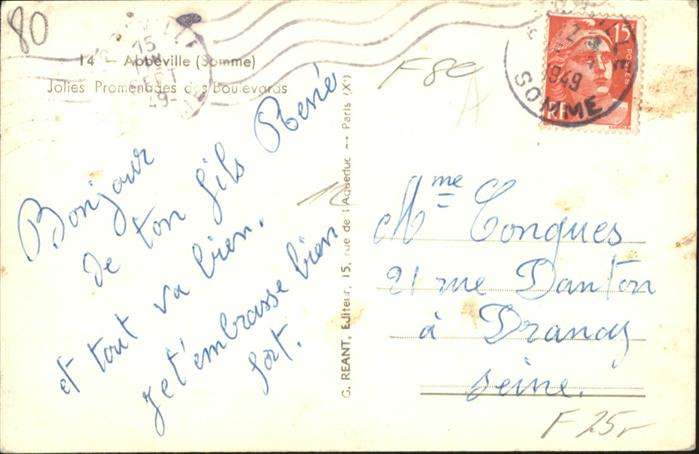 80
14 — Abbeville (Somme)
Jolies Promenades des Boulevards
15
49
F 80
A
15
1949
SOMME
Bonjour
de ton fils René
et tout va bien.
je t'embrasse bien
fort.
G. REANT, Editeur, 15, rue de l'Aqueduc — Paris (Xe)
Mme Conques
21 rue Danton
à Drancy
Seine.
F 25